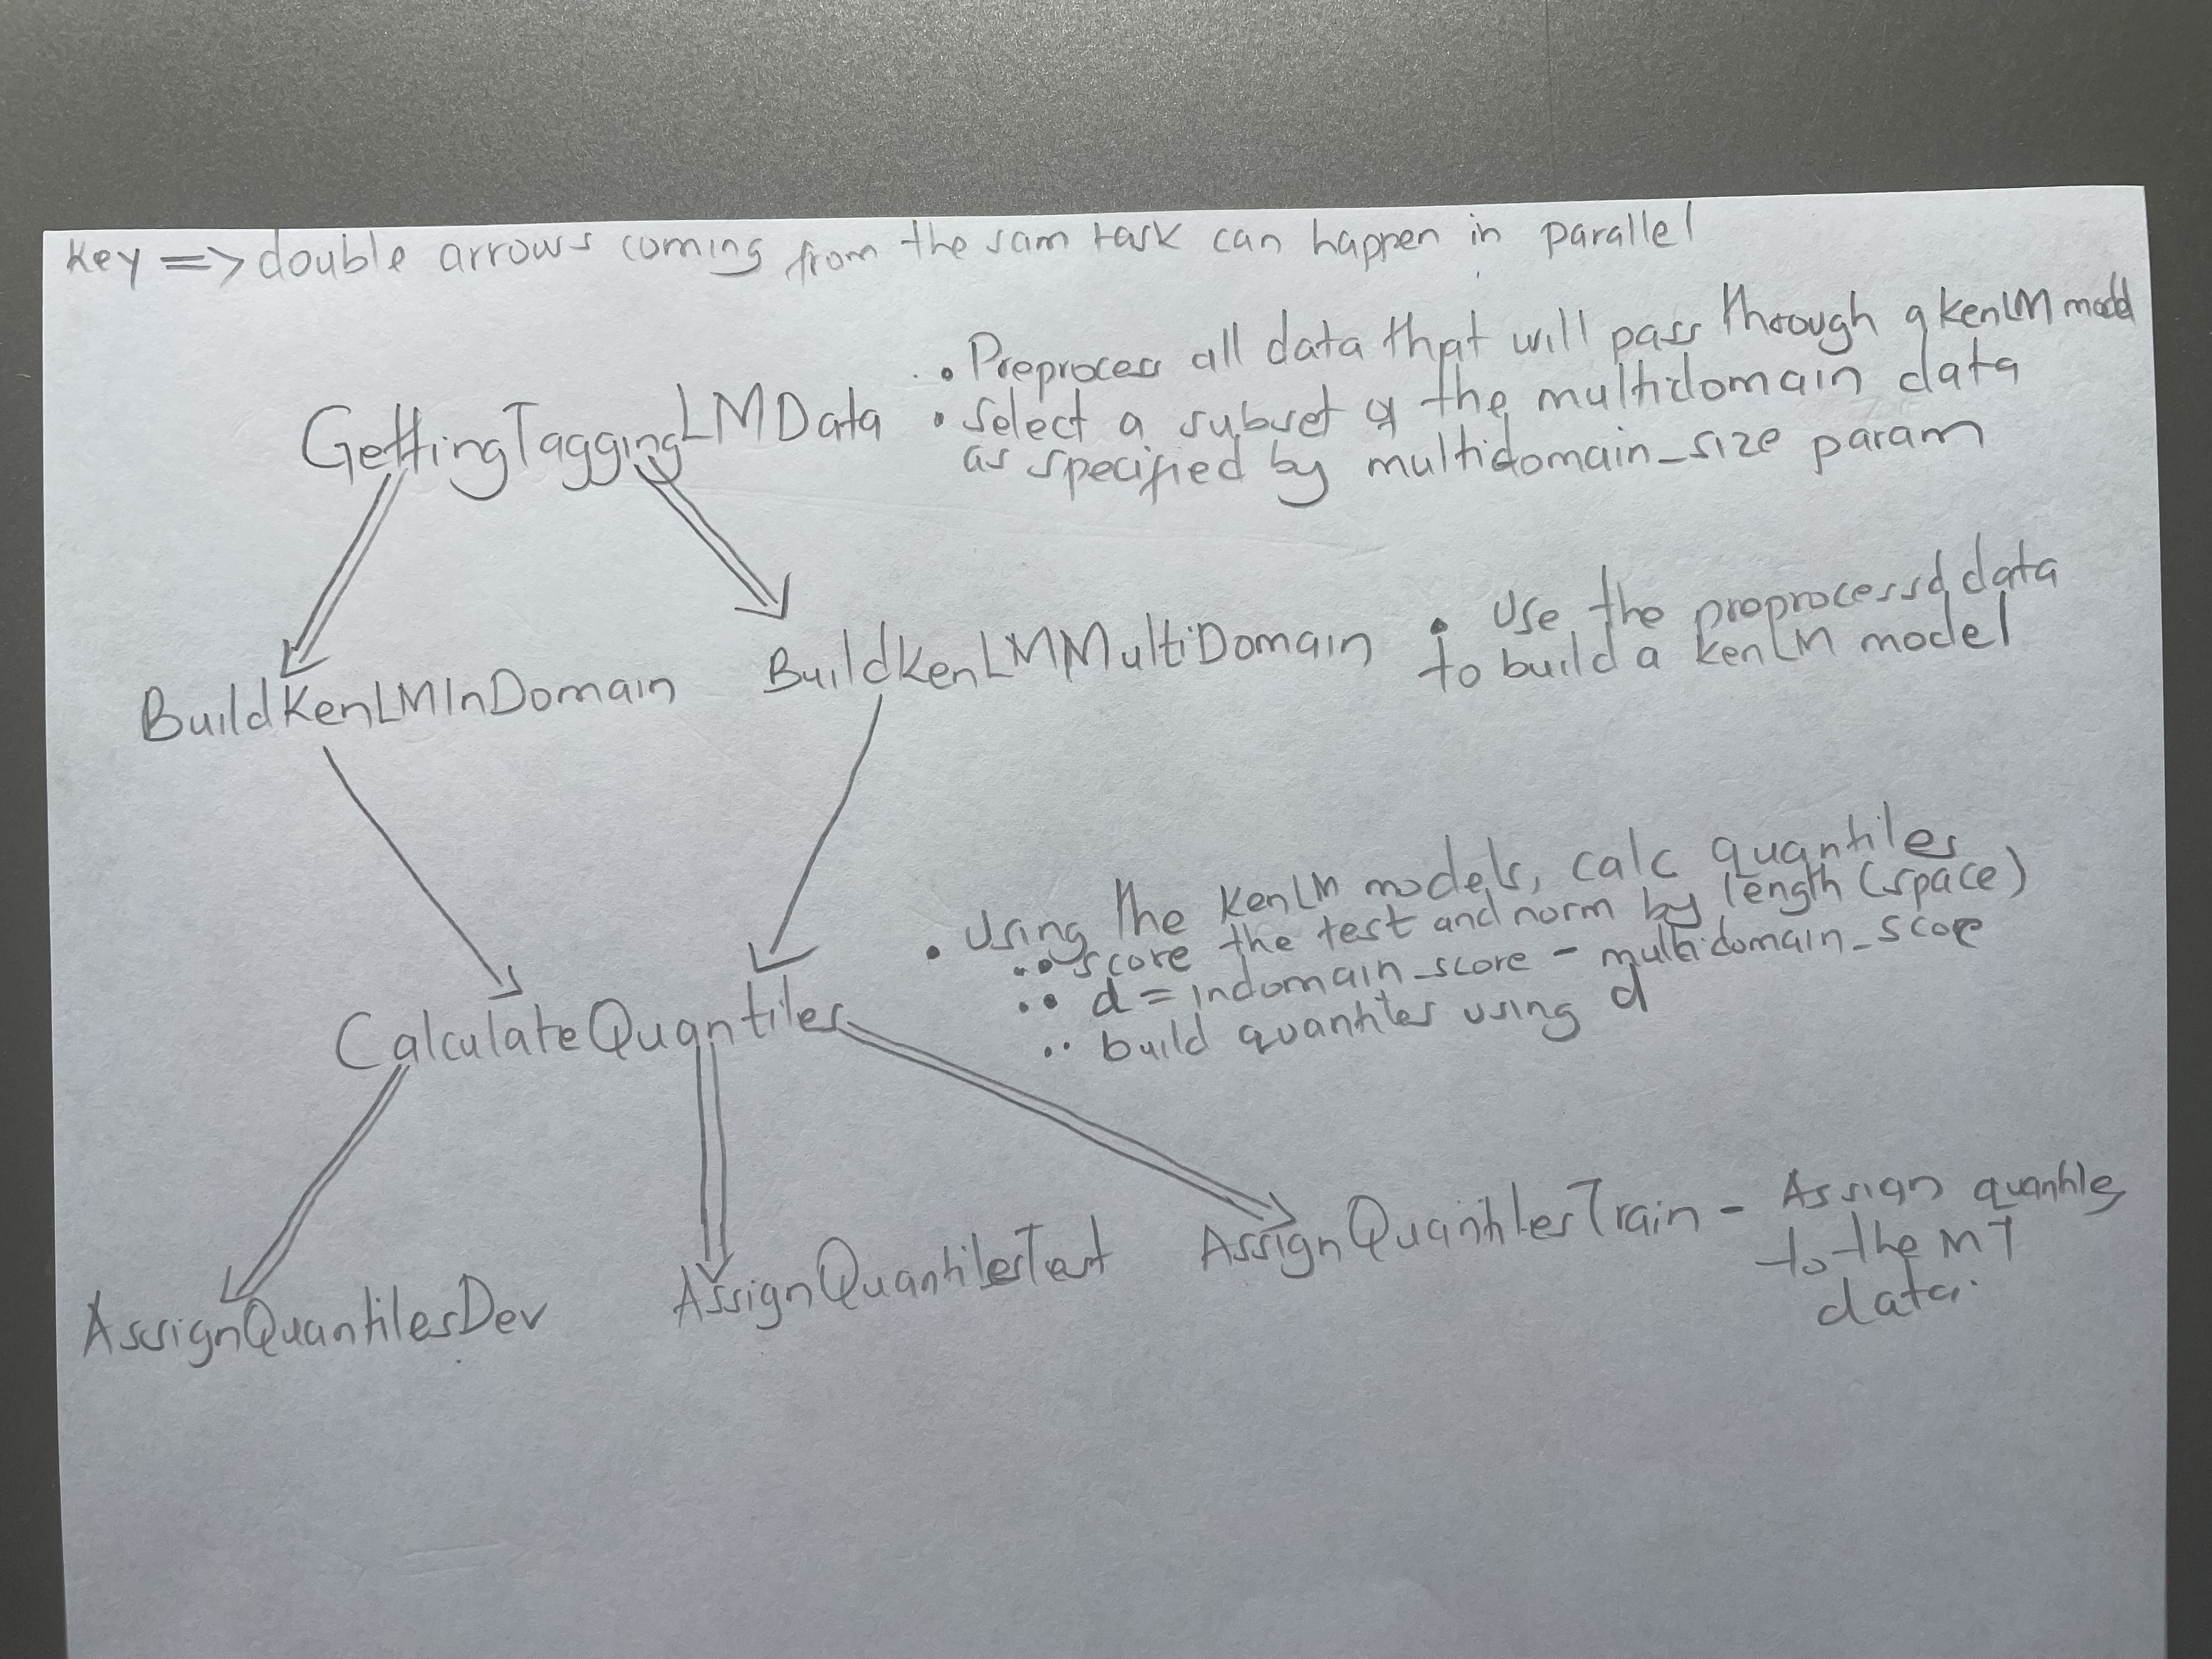 key => double arrows coming from the sam task can happen in parallel
GettingTaggingLMData
• Preprocess all data that will pass through a kenLM model
• Select a subset of the multidomain data
as specified by multidomain_size param
BuildKenLMInDomain
BuildKenLMMultiDomain
• Use the preprocessd data
to build a kenLM model
CalculateQuantiles
• Using the KenLM models, calc quantiles
•• score the test and norm by length (space)
•• d = indomain_score - multidomain_score
•• build quantiles using d
AssignQuantilesDev
AssignQuantilesTest
AssignQuantilesTrain - Assign quantiles
to the MT
data.